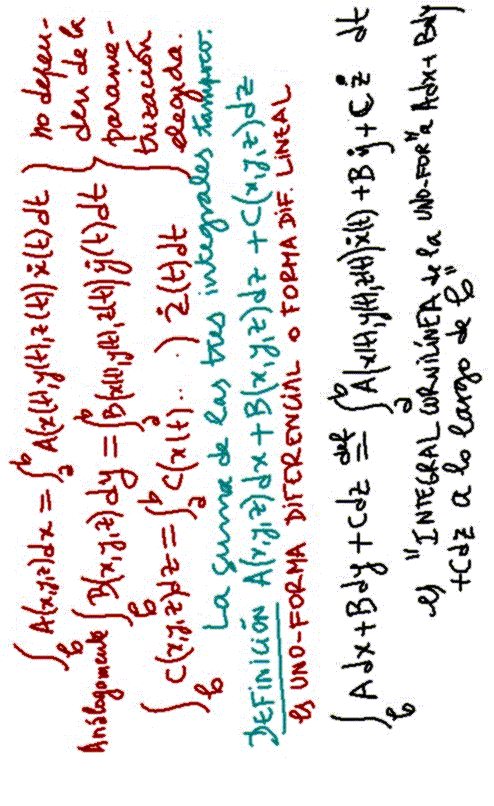 ∫_ℓ A(x,y,z)dx = ∫_a^b A(x(t),y(t),z(t)) ẋ(t)dt
Análogamente ∫_ℓ B(x,y,z)dy = ∫_a^b B(x(t),y(t),z(t)) ẏ(t)dt
∫_ℓ C(x,y,z)dz = ∫_a^b C(x(t)...) ż(t)dt
} no depen-
den de la
parame-
trización
elegida.
La suma de las tres integrales tampoco.
DEFINICIÓN A(x,y,z)dx + B(x,y,z)dz + C(x,y,z)dz
es UNO-FORMA DIFERENCIAL O FORMA DIF. LINEAL
∫_ℓ Adx + Bdy + Cdz def= ∫_a^b A(x(t),y(t),z(t))ẋ(t) + Bẏ + Cż dt
es "INTEGRAL CURVILÍNEA de la UNO-FOR" a Adx + Bdy
+Cdz a lo largo de ℓ"